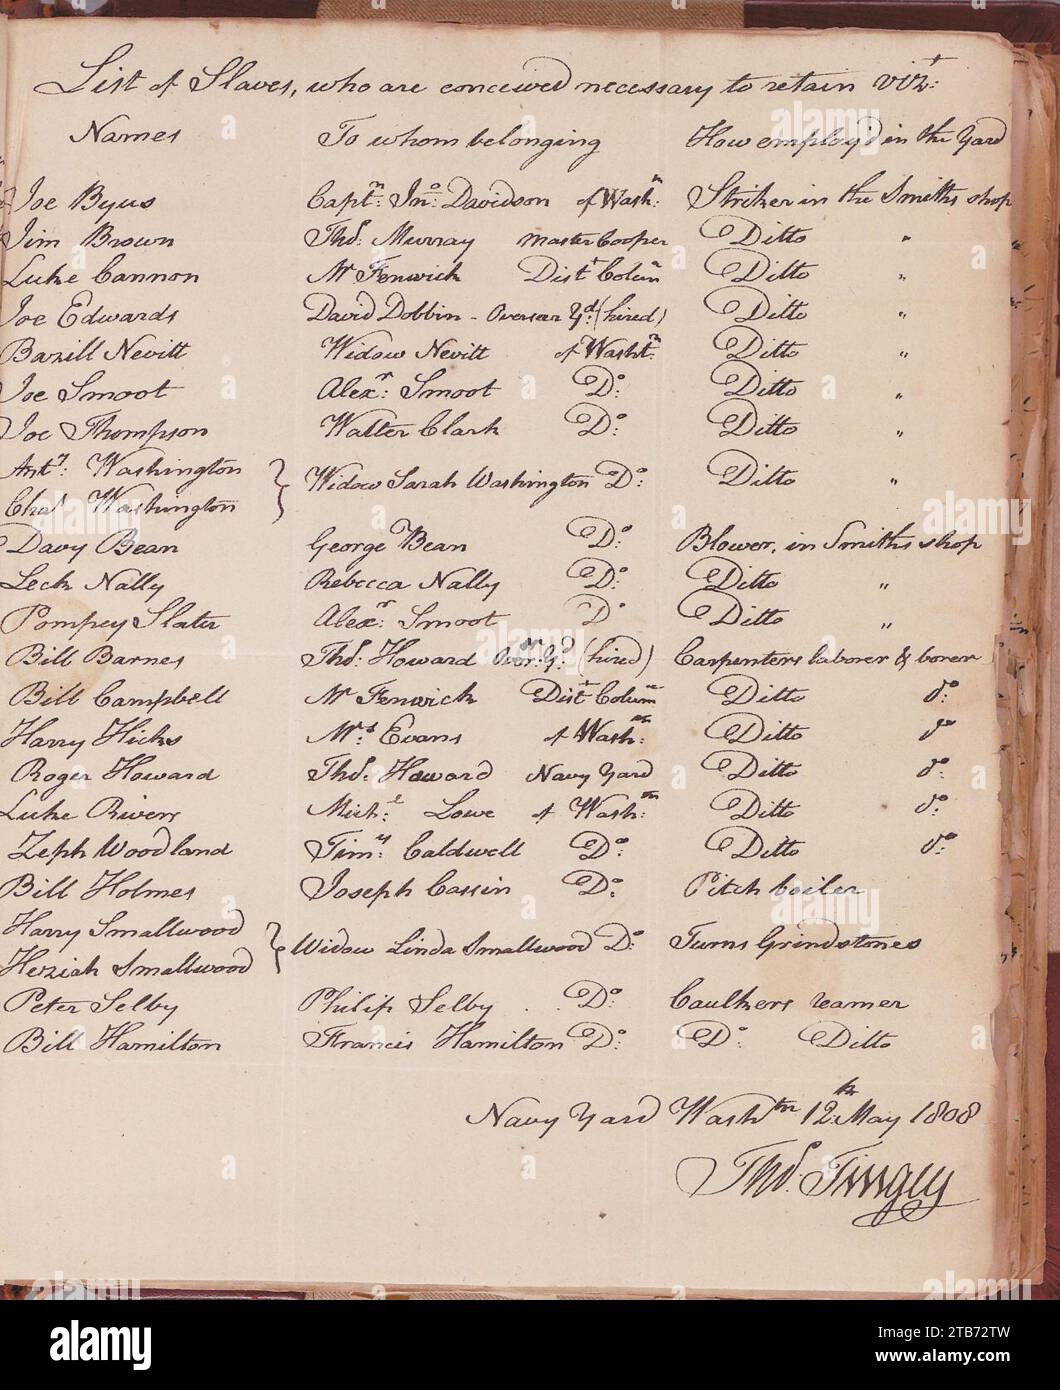 List of Slaves, who are conceived necessary to retain vizt:
Names To whom belonging How employ'd in the Yard
Joe Byus Captn: Jno: Davidson of Washn: Striker in the Smiths shop
Jim Brown Thos: Murray Master Cooper Ditto "
Luke Cannon Mr Fenwick Distt Colum Ditto "
Joe Edwards David Dobbin - Overseer Yd: (hired) Ditto "
Bazill Nevitt Widow Nevitt of Washtn: Ditto "
Joe Smoot Alexr: Smoot Do: Ditto "
Joe Thompson Walter Clark Do: Ditto "
Anty: Washington } Widow Sarah Washington Do: Ditto "
Chas Washington
Davy Bean George Bean Do: Blower, in Smiths shop
Leck Nally Rebecca Nally Do: Ditto "
Pompey Slater Alexr: Smoot Do Ditto "
Bill Barnes Thos: Howard Ovor: Yd (hired) Carpenters laborer & borer
Bill Campbell Mr Fenwick Distt Colum Ditto do:
Harry Hicks Mrs: Evans of Washtn: Ditto do
Roger Howard Thos: Howard Navy Yard Ditto do:
Luke Rivers Michl: Lowe of Washtn: Ditto do:
Zeph Woodland Timy: Caldwell Do: Ditto do:
Bill Holmes Joseph Cassin Do: Pitch boiler
Harry Smallwood } Widow Linda Smallwood Do: Turns Grindstones
Heziah Smallwood
Peter Selby Philip Selby . . Do: Caulkers reamer
Bill Hamilton Francis Hamilton Do: Do: Ditto
Navy Yard Washtn 12th May 1808
Thos. Tingey
alamy
Image ID: 2TB72TW
www.alamy.com